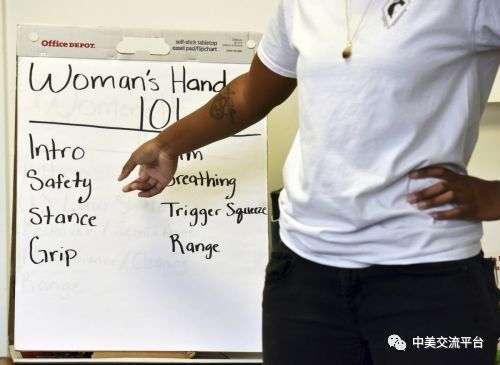 Office DEPOT
self-stick tabletop
easel pad/flipchart
Woman's Hand
101
Intro
Safety
Stance
Grip
Breathing
Trigger Squeeze
Range
Range
中美交流平台